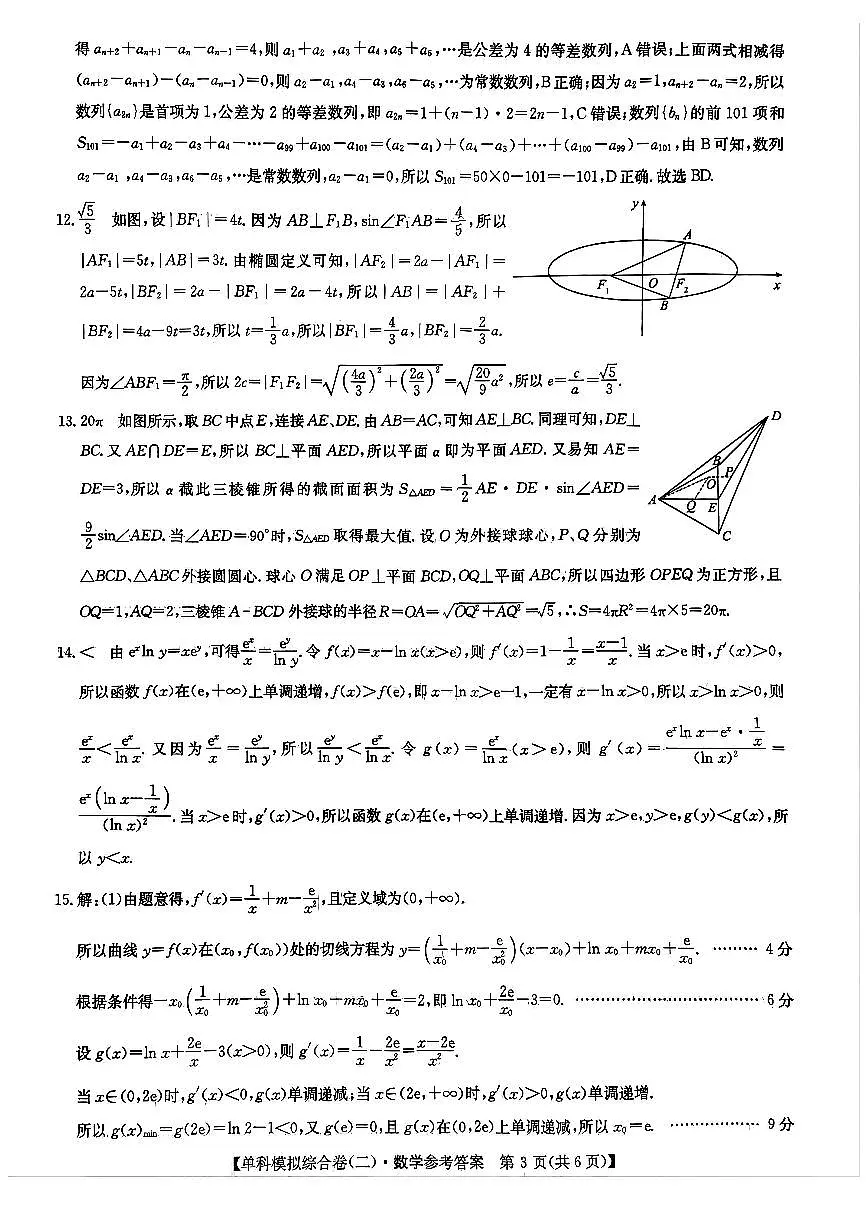 得 aₙ₊₂+aₙ₊₁-aₙ-aₙ₋₁=4,则 a₁+a₂,a₃+a₄,a₅+a₆,…是公差为 4 的等差数列,A 错误;上面两式相减得
(aₙ₊₂-aₙ₊₁)-(aₙ-aₙ₋₁)=0,则 a₂-a₁,a₄-a₃,a₆-a₅,…为常数数列,B 正确;因为 a₂=1,aₙ₊₂-aₙ=2,所以
数列{a₂ₙ}是首项为 1,公差为 2 的等差数列,即 a₂ₙ=1+(n-1)·2=2n-1,C 错误;数列{bₙ}的前 101 项和
S₁₀₁=-a₁+a₂-a₃+a₄-…-a₉₉+a₁₀₀-a₁₀₁=(a₂-a₁)+(a₄-a₃)+…+(a₁₀₀-a₉₉)-a₁₀₁,由 B 可知,数列
a₂-a₁,a₄-a₃,a₆-a₅,…是常数数列,a₂-a₁=0,所以 S₁₀₁=50×0-101=-101,D 正确.故选 BD.
12. √5/3 如图,设|BF₁|=4t.因为 AB⊥F₁B,sin∠F₁AB=4/5,所以
|AF₁|=5t,|AB|=3t.由椭圆定义可知,|AF₂|=2a-|AF₁|=
2a-5t,|BF₂|=2a-|BF₁|=2a-4t,所以|AB|=|AF₂|+
|BF₂|=4a-9t=3t,所以 t=1/3a,所以|BF₁|=4/3a,|BF₂|=2/3a.
因为∠ABF₁=π/2,所以 2c=|F₁F₂|=√((4a/3)²+(2a/3)²)=√(20/9a²),所以 e=c/a=√5/3.
y
A
F₁
O
F₂
x
B
13. 20π 如图所示,取 BC 中点 E,连接 AE、DE.由 AB=AC,可知 AE⊥BC.同理可知,DE⊥
BC.又 AE∩DE=E,所以 BC⊥平面 AED,所以平面 α 即为平面 AED.又易知 AE=
DE=3,所以 α 截此三棱锥所得的截面面积为 S△AED=1/2AE·DE·sin∠AED=
9/2sin∠AED.当∠AED=90°时,S△AED 取得最大值.设 O 为外接球球心,P、Q 分别为
△BCD、△ABC 外接圆圆心.球心 O 满足 OP⊥平面 BCD,OQ⊥平面 ABC,所以四边形 OPEQ 为正方形,且
OQ=1,AQ=2,三棱锥 A-BCD 外接球的半径 R=OA=√(OQ²+AQ²)=√5,∴S=4πR²=4π×5=20π.
D
B
P
O
A
Q
E
C
14. < 由 eˣln y=xeʸ,可得 eˣ/x=eʸ/ln y.令 f(x)=x-ln x(x>e),则 f′(x)=1-1/x=(x-1)/x.当 x>e 时,f′(x)>0,
所以函数 f(x)在(e,+∞)上单调递增,f(x)>f(e),即 x-ln x>e-1,一定有 x-ln x>0,所以 x>ln x>0,则
eˣ/x<eˣ/ln x.又因为 eˣ/x=eʸ/ln y,所以 eʸ/ln y<eˣ/ln x.令 g(x)=eˣ/ln x(x>e),则 g′(x)=(eˣln x-eˣ·1/x)/(ln x)²=
eˣ(ln x-1/x)/(ln x)².当 x>e 时,g′(x)>0,所以函数 g(x)在(e,+∞)上单调递增.因为 x>e,y>e,g(y)<g(x),所
以 y<x.
15. 解:(1)由题意得,f′(x)=1/x+m-e/x²,且定义域为(0,+∞).
所以曲线 y=f(x)在(x₀,f(x₀))处的切线方程为 y=(1/x₀+m-e/x₀²)(x-x₀)+ln x₀+mx₀+e/x₀. ……… 4 分
根据条件得-x₀(1/x₀+m-e/x₀²)+ln x₀+mx₀+e/x₀=2,即 ln x₀+2e/x₀-3=0. ……………………………… 6 分
设 g(x)=ln x+2e/x-3(x>0),则 g′(x)=1/x-2e/x²=(x-2e)/x².
当 x∈(0,2e)时,g′(x)<0,g(x)单调递减;当 x∈(2e,+∞)时,g′(x)>0,g(x)单调递增.
所以 g(x)ₘᵢₙ=g(2e)=ln 2-1<0,又 g(e)=0,且 g(x)在(0,2e)上单调递减,所以 x₀=e. ……………… 9 分
【单科模拟综合卷(二)·数学参考答案 第 3 页(共 6 页)】